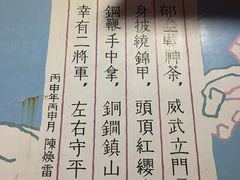 郁壘戰神荼，威武立門
身披繞錦甲，頭頂紅纓
鋼鞭手中拿，銅鐧鎮山
幸有二將軍，左右守平
丙申年丙申月 陳煥雷